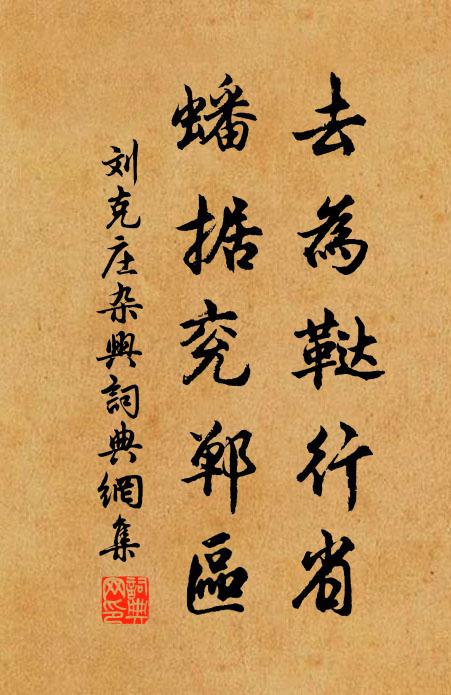 去為鞑行省
蟠据兖鄆區
刘克庄杂興詞典網集
詞典网印